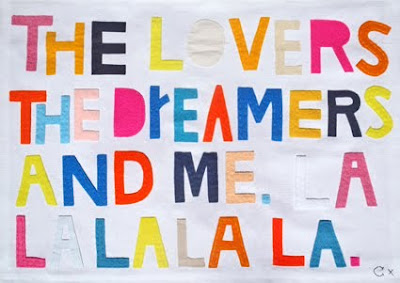 THE LOVERS
THE DREAMERS
AND ME. LA
LA LA LA LA.
C x